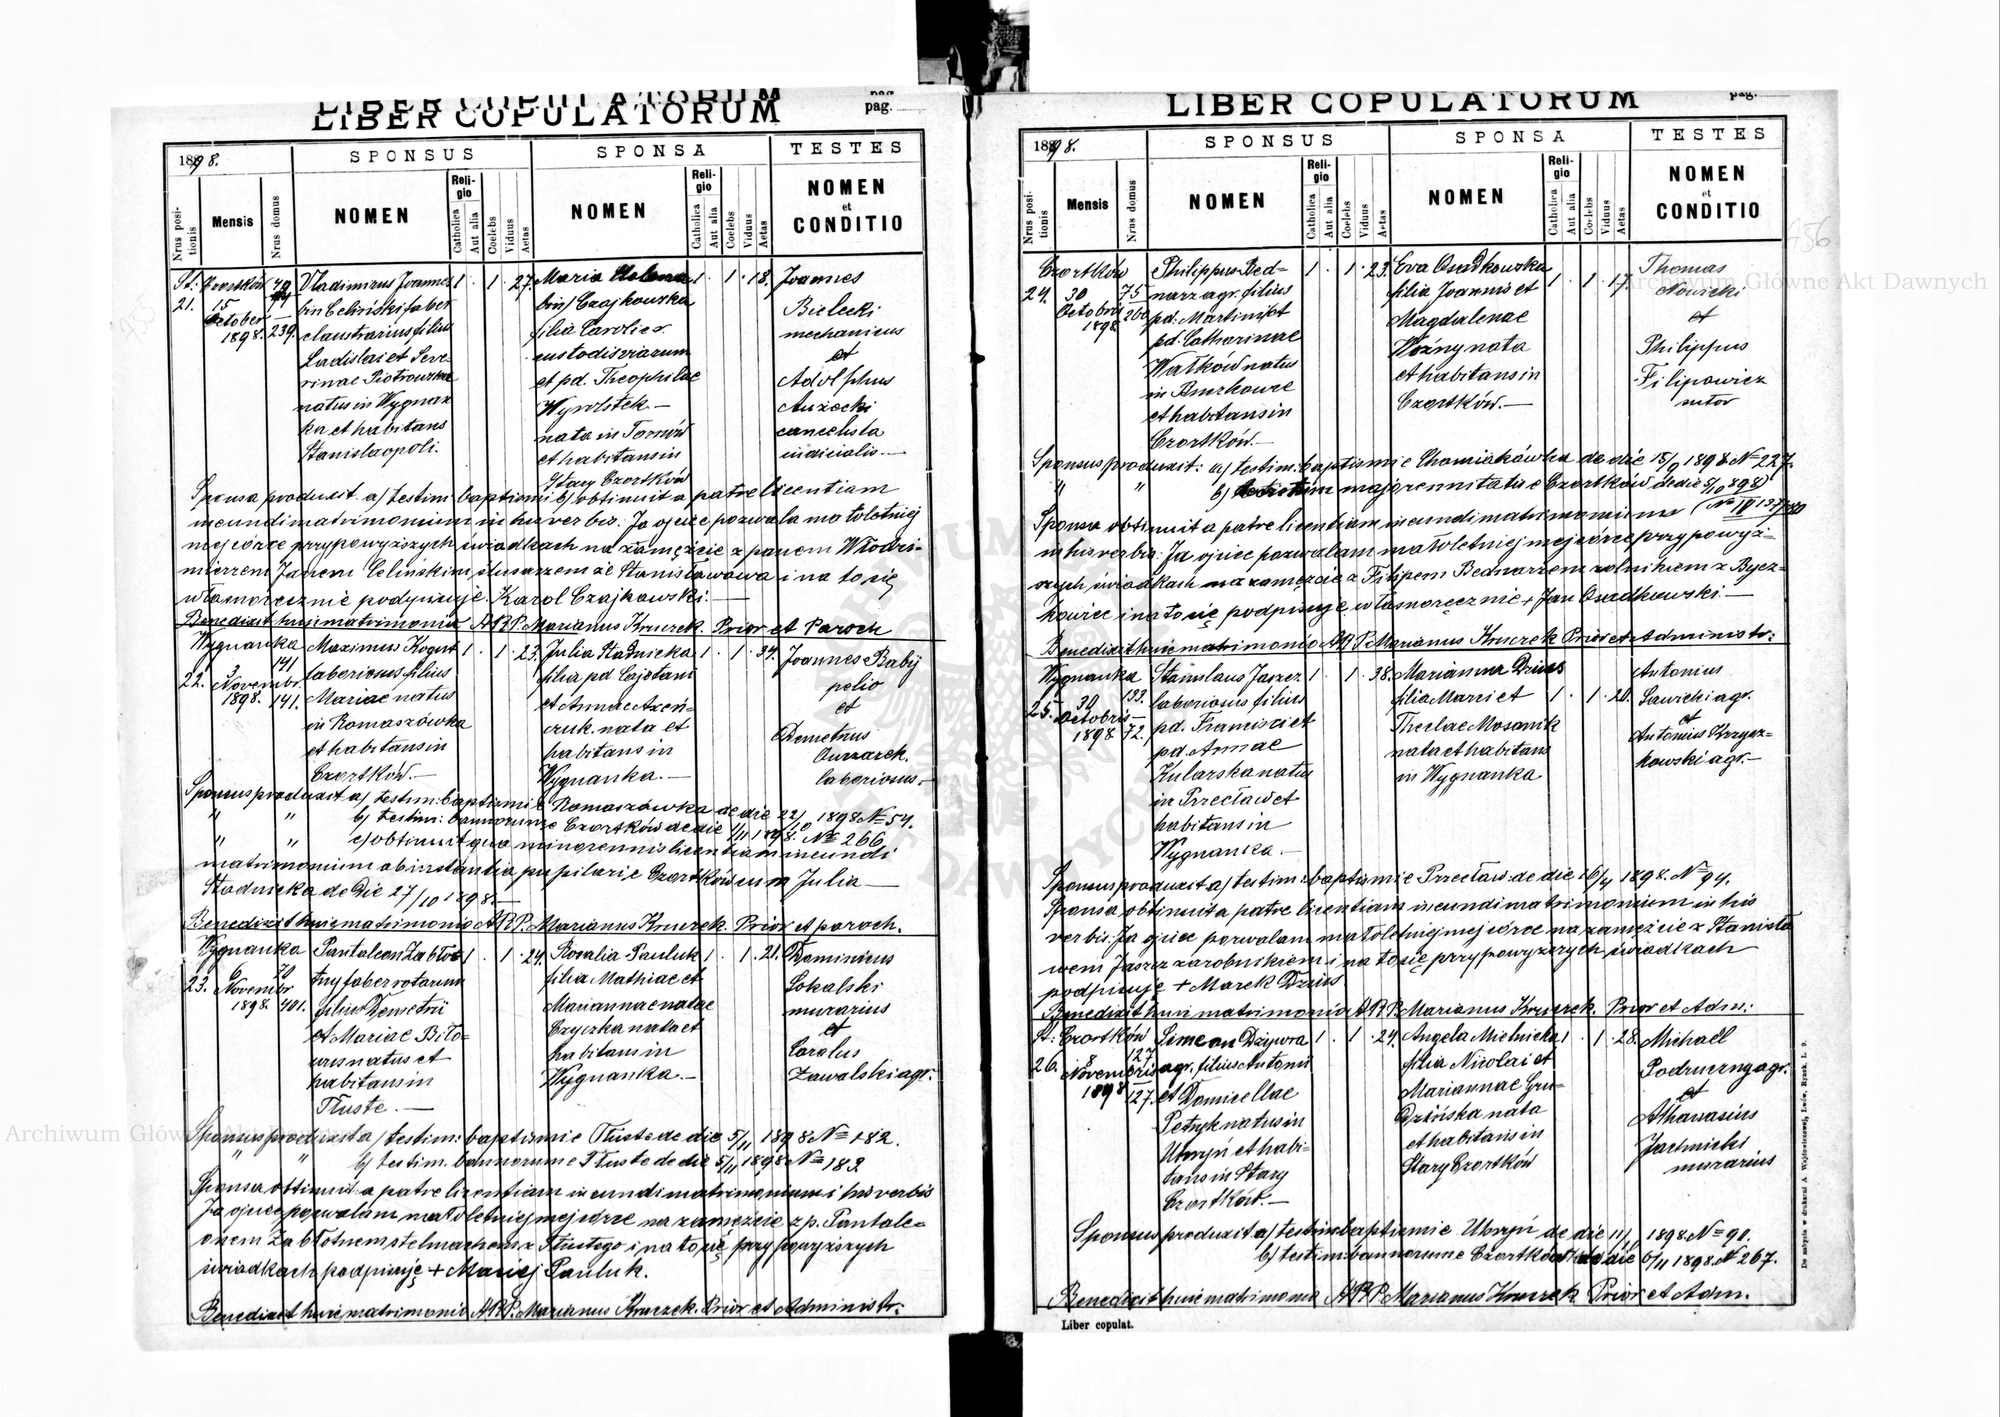 LIBER COPULATORUM
pag.
1898.
SPONSUS
SPONSA
TESTES
Nrus positionis
Mensis
Nrus domus
NOMEN
Religio
Catholica
Aut alia
Coelebs
Viduus
Aetas
NOMEN
Religio
Catholica
Aut alia
Coelebs
Viduus
Aetas
NOMEN
et
CONDITIO
St: Czortków
21. 15
October
1898. 239.
Vladimirus Joannes
bin Celiński faber
claustrarius filius
Ladislai et Seve-
rinae Piotrowska
natus in Wygnan
ka et habitans
Stanislaopoli.
1 . 1 . 27.
Maria Helena
bin/ Czajkowska
filia Caroli
custodis viarum
et pd. Theophilae
nata in Tarnów
et habitans in
Stary Czortków
1 . 1 . 18.
Joannes
Bielecki
mechanicus
et
Adolphus
cancelista
iudicialis.
Sponsa produxit a) testim: baptismi b) obtinuit a patre licentiam
ineundi matrimonium in his verbis: Ja ojciec pozwala małoletniej
mej córce przy powyższych świadkach na zamęźcie z panem Włodzi-
mierzem Janem Celinskim ślusarzem ze Stanisławowa i na to się
własnoręcznie podpisuje. Karol Czajkowski.
Benedixit huic matrimonio A.R.P. Marianus Kruczek. Prior et Paroch
Wygnanka
22. 3
Novembr.
1898. 141.
141
Maximus Kogut
laboriosus filius
Mariae natus
in Romaszówka
et habitans in
Czortków.
1 . 1 . 23.
Julia Stadnicka
filia pd Cajetani
et Annae Axeń-
czuk. nata et
habitans in
Wygnanka.
1 . 1 . 34.
Joannes Babij
pelio
et
Demetrius
laboriosus
Sponsus produxit a/ testim: baptismi e Romaszówka de die 22/10 1898 N 54.
" " b) testim: bannorum e Czortków de die 1/11 1898. No 266
" " c/ obtinuit qua minorennis licentiam ineundi
matrimonium ab instantia pupilari e Czortków cum Julia
Stadnicka de Die 27/10 1898.
Benedixit huic matrimonio A.R.P. Marianus Kruczek. Prior et paroch.
Wygnanka
23. 6
Novembr
1898. 401.
70
Pantaleon Zabłot
tny faber rotarum
filius Demetrii
et Mariae Biło-
us natus et
habitans in
Tłuste.
1 . 1 . 24.
Rosalia Pauluk
filia Mathiae et
Mariannae natae
Czyczka nata et
habitans in
Wygnanka.
1 . 1 . 21.
Dominicus
Sokalski
murarius
et
Carolus
Zawalski agr.
Sponsus produxit a/ testim: baptismi e Tłuste de die 5/11 1898 No 182.
" " b) testim. bannorum e Tłuste de die 5/11 1898 No 183
Sponsa obtinuit a patre licentiam ineundi matrimonium i his verbis
Ja ojciec pozwalam małoletniej mej córce na zamęźcie z p. Pantale-
onem Zabłotnem stelmachem z Tłustego i na to się przy powyższych
świadkach podpisuję + Maciej Pauluk.
Benedixit huic matrimonio A.R.P. Marianus Kruczek. Prior et Administr.
LIBER COPULATORUM
pag.
1898.
SPONSUS
SPONSA
TESTES
Nrus positionis
Mensis
Nrus domus
NOMEN
Religio
Catholica
Aut alia
Coelebs
Viduus
Aetas
NOMEN
Religio
Catholica
Aut alia
Coelebs
Viduus
Aetas
NOMEN
et
CONDITIO
Czortków
24. 30
Octobris
1898
75
260
Philippus Bed-
narz agr. filius
pd. Martini et
pd. Catharinae
Wałków natus
et habitans in
Czortków.
1 . 1 . 23.
Eva Osadkowska
filia Joannis et
Magdalenae
Woźny nata
et habitans in
Czortków.
1 . 1 . 17.
Thomas
Nowicki
et
Philippus
Filipowicz
sutor
Sponsus produxit: a) testim: baptismi e Chomiakówka de die 15/9 1898 No 227.
" " b) majorennitatis e Czortków de die 5/10 898
Sponsa obtinuit a patre licentiam ineundi matrimonium
in his verbis: Ja ojciec pozwalam małoletniej mej córce przy powyż-
szych świadkach na zamęzcie z Filipem Bednarzem rolnikiem z Bycz-
kowiec i na to się podpisuję własnoręcznie + Jan Osadkowski.
Benedixit huic matrimonio A.R.P. Marianus Kruczek Prior et Administr:
Wygnanka
25. 30
Octobris
1898 72.
133.
Stanislaus Jaszcz
laboriosus filius
pd. Francisci et
pd. Annae
Kularska natus
in Przecław et
habitans in
Wygnanka.
1 . 1 . 38.
Marianna Dzius
filia Marci et
Theclae Mosannik
nata et habitans
in Wygnanka
1 . 1 . 20.
Antonius
Sawicki agr.
et
Antonius Krzycz-
kowski agr.
Sponsus produxit a/ testim: baptismi e Przecław de die 16/4 1898. No 94.
Sponsa obtinuit a patre licentiam ineundi matrimonium in his
verbis: Ja ojciec pozwalam małoletniej mej córce na zamęźcie z Stanisła
wem Jaszcz zarobnikiem i na to się przy powyższych świadkach
podpisuję + Marek Dzius
Benedixit huic matrimonio A.R.P. Marianus Kruczek. Prior et Adm:
St: Czortków
26. 8
Novembris
1898 127.
127
Simeon Dżiwora
agr. filius Antonii
et Domicellae
Petryk natus in
Uhryń et habi-
tans in Stary
Czortków.
1 . 1 . 24.
Angela Mielnicka
filia Nicolai et
Mariannae Gru-
dzińska nata
et habitans in
Stary Czortków
1 . 1 . 28.
Michaël
Podruczny agr.
et
Athanasius
Jachnicki
murarius
Sponsus produxit a) testim: baptismi e Uhryń de die 11/ 1898. No 90.
b) testim: bannorum e Czortków de die 6/11 1898. No 267.
Benedixit huic matrimonio A.R.P. Marianus Kruczek Prior et Adm.
Liber copulat.
Do nabycia w drukarni A. Wajdowiczowej, Lwów, Rynek. L. 9.
Archiwum Główne Akt Dawnych
Archiwum Główne Akt Dawnych